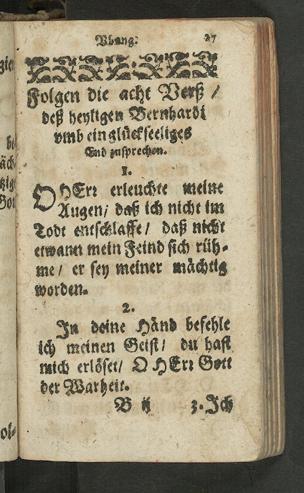 Vbung. 27
Folgen die acht Verß /
deß heyligen Bernhardi
vmb ein glückseeliges
End zusprechen.
1.
O HErr erleuchte meine
Augen / daß ich nicht im
Todt entschlaffe / daß nicht
etwann mein Feind sich rüh-
me / er sey meiner mächtig
worden.
2.
In deine Händ befehle
ich meinen Geist / du hast
mich erlöset / O HErr Gott
der Warheit.
B ij 3. Ich